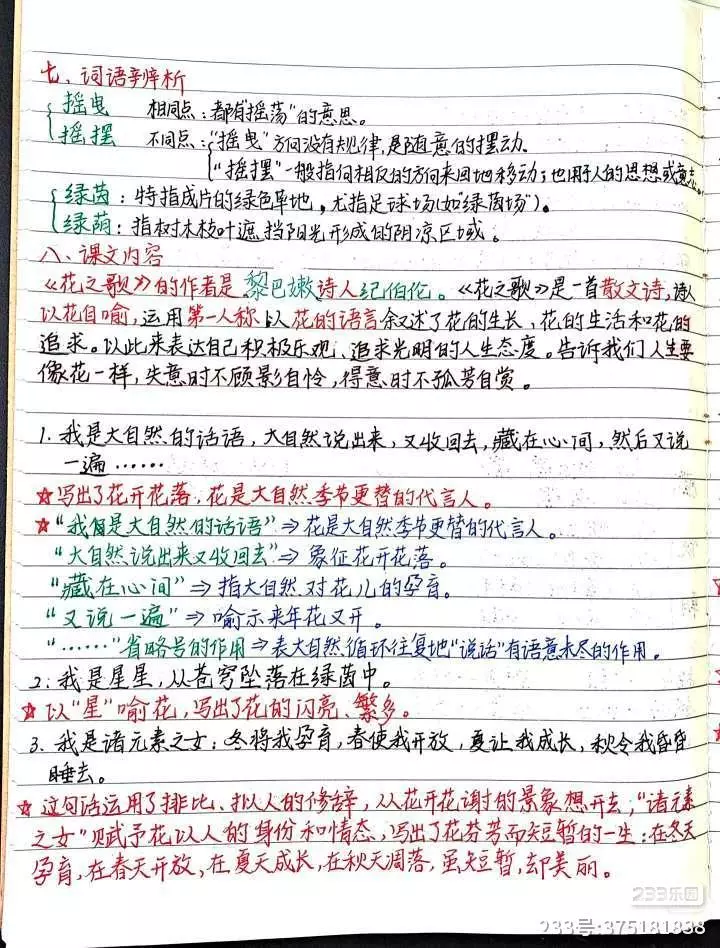 七、词语辨析
摇曳 相同点：都有"摇荡"的意思。
摇摆 不同点："摇曳"方向没有规律，是随意的摆动。
"摇摆"一般指向相反的方向来回地移动；也用于人的思想或意志。
绿茵：特指成片的绿色草地，尤指足球场（如"绿茵场"）。
绿荫：指树木枝叶遮挡阳光形成的阴凉区域。
八、课文内容
《花之歌》的作者是黎巴嫩诗人纪伯伦。《花之歌》是一首散文诗，诗人
以花自喻，运用第一人称以花的语言叙述了花的生长、花的生活和花的
追求。以此来表达自己积极乐观、追求光明的人生态度。告诉我们人生要
像花一样，失意时不顾影自怜，得意时不孤芳自赏。
1. 我是大自然的话语，大自然说出来，又收回去，藏在心间，然后又说
一遍……
☆写出了花开花落，花是大自然季节更替的代言人。
☆"我是大自然的话语"⇒花是大自然季节更替的代言人。
"大自然说出来又收回去"⇒象征花开花落。
"藏在心间"⇒指大自然对花儿的孕育。
"又说一遍"⇒喻示来年花又开。
"……"省略号的作用⇒表大自然循环往复地"说话"有语意未尽的作用。
2. 我是星星，从苍穹坠落在绿茵中。
☆以"星"喻花，写出了花的闪亮、繁多。
3. 我是诸元素之女：冬将我孕育，春使我开放，夏让我成长，秋令我昏昏
睡去。
☆这句话运用了排比、拟人的修辞，从花开花谢的景象想开去，"诸元素
之女"则赋予花以人的身份和情态，写出了花芬芳而短暂的一生：在冬天
孕育，在春天开放，在夏天成长，在秋天凋落，虽短暂，却美丽。
233乐园
233号:375181838